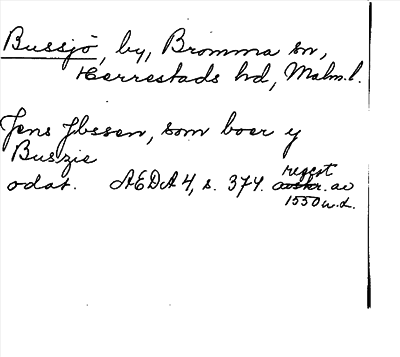 Bussjö, by, Bromma sn,
Herrestads hd, Malm.l.
Jens Jbssen, som boer y
Buszie
odat. AEDA 4, s. 374. regest av
1550 u.d.